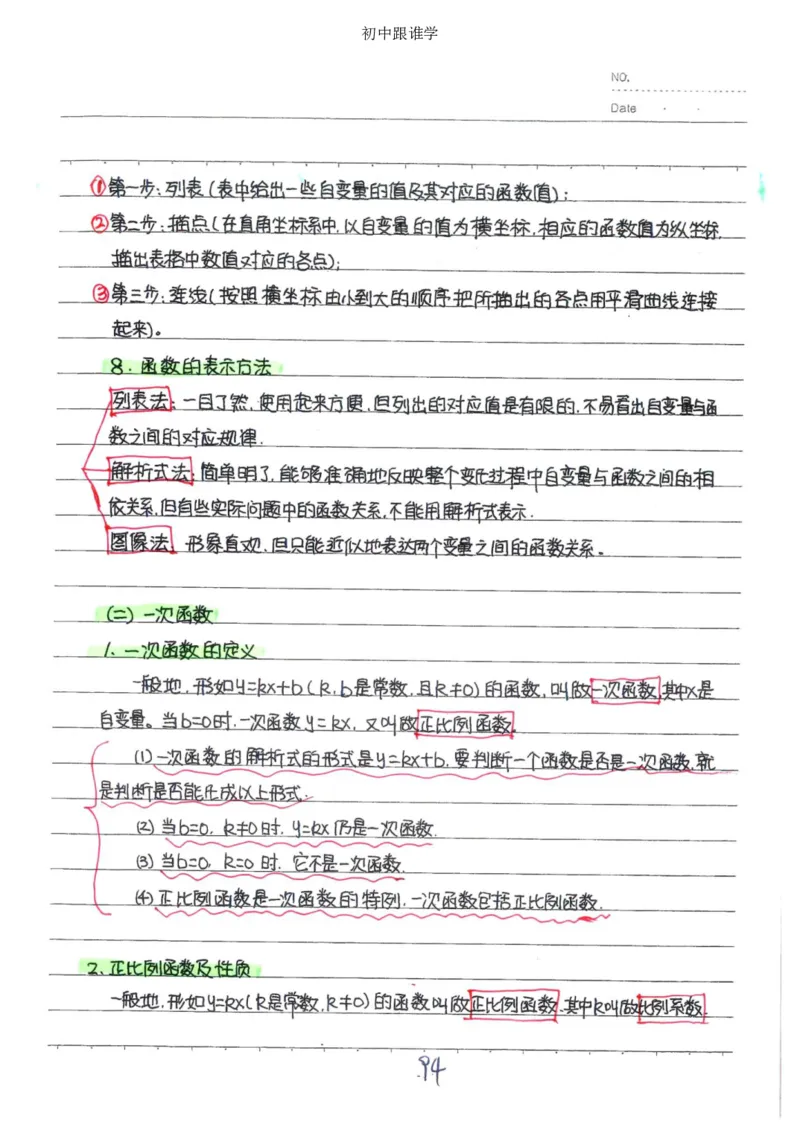 初中跟谁学
NO.
Date
①第一步:列表(表中给出一些自变量的值及其对应的函数值);
②第二步:描点(在直角坐标系中,以自变量的值为横坐标,相应的函数值为纵坐标,
描出表格中数值对应的各点);
③第三步:连线(按照横坐标由小到大的顺序把所描出的各点用平滑曲线连接
起来)。
8.函数的表示方法
列表法:一目了然,使用起来方便,但列出的对应值是有限的,不易看出自变量与函
数之间的对应规律.
解析式法:简单明了,能够准确地反映整个变化过程中自变量与函数之间的相
依关系,但有些实际问题中的函数关系,不能用解析式表示.
图像法:形象直观,但只能近似地表达两个变量之间的函数关系。
(二)一次函数
1.一次函数的定义
一般地,形如y=kx+b(k,b是常数,且k≠0)的函数,叫做一次函数,其中x是
自变量。当b=0时,一次函数y=kx,又叫做正比例函数.
(1)一次函数的解析式的形式是y=kx+b,要判断一个函数是否是一次函数,就
是判断是否能化成以上形式.
(2)当b=0,k≠0时,y=kx仍是一次函数.
(3)当b=0,k=0时,它不是一次函数.
(4)正比例函数是一次函数的特例,一次函数包括正比例函数.
2.正比例函数及性质
一般地,形如y=kx(k是常数,k≠0)的函数叫做正比例函数,其中k叫做比例系数.
94